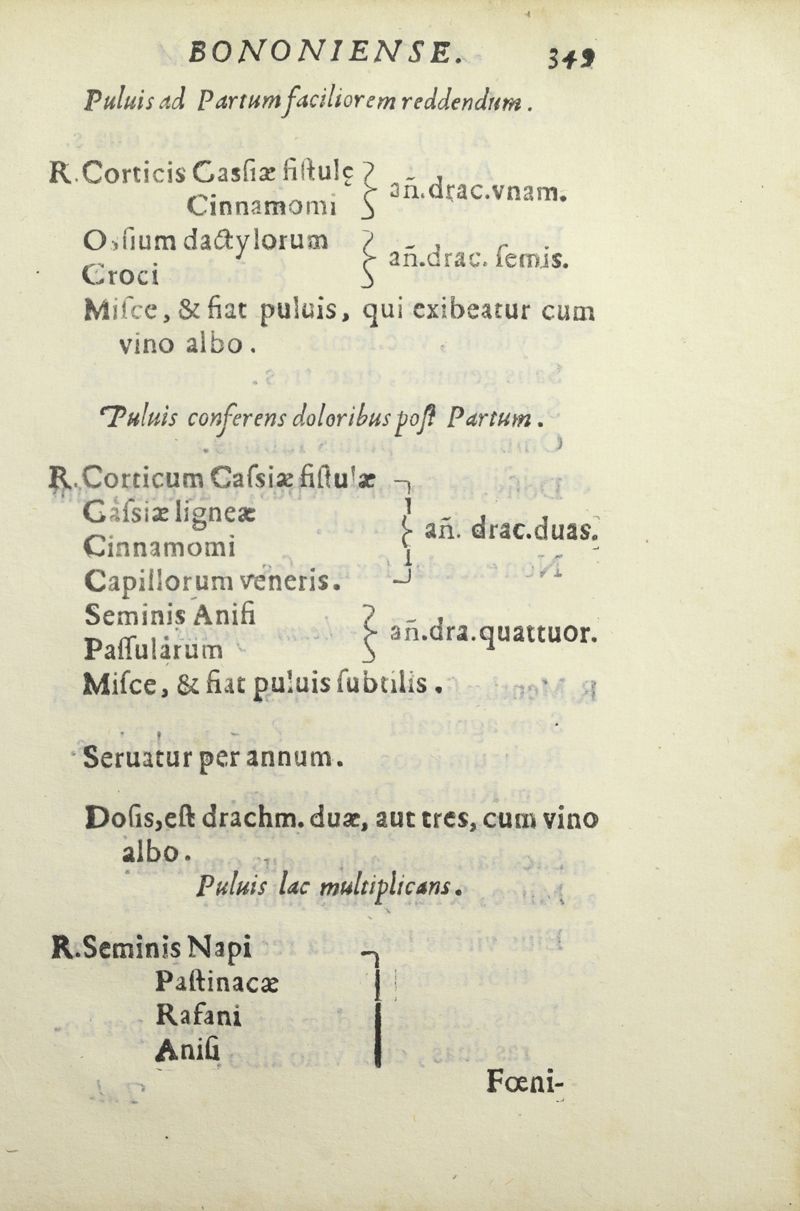 BONONIENSE. 349
Puluis ad Partum faciliorem reddendum.
R. Corticis Casſiæ fiſtulę
Cinnamomi } añ. drac. vnam.
Osſium dactylorum
Croci } añ. drac. ſemis.
Miſce, & fiat puluis, qui exibeatur cum
vino albo.
Puluis conferens doloribus poſt Partum.
R. Corticum Caſsiæ fiſtulæ
Caſsiæ ligneæ
Cinnamomi } añ. drac. duas.
Capillorum veneris.
Seminis Aniſi
Paſſularum } añ. dra. quattuor.
Miſce, & fiat puluis ſubtilis.
Seruatur per annum.
Doſis, eſt drachm. duæ, aut tres, cum vino
albo.
Puluis lac multiplicans.
R. Seminis Napi
Paſtinacæ
Rafani
Aniſi
Fœni-